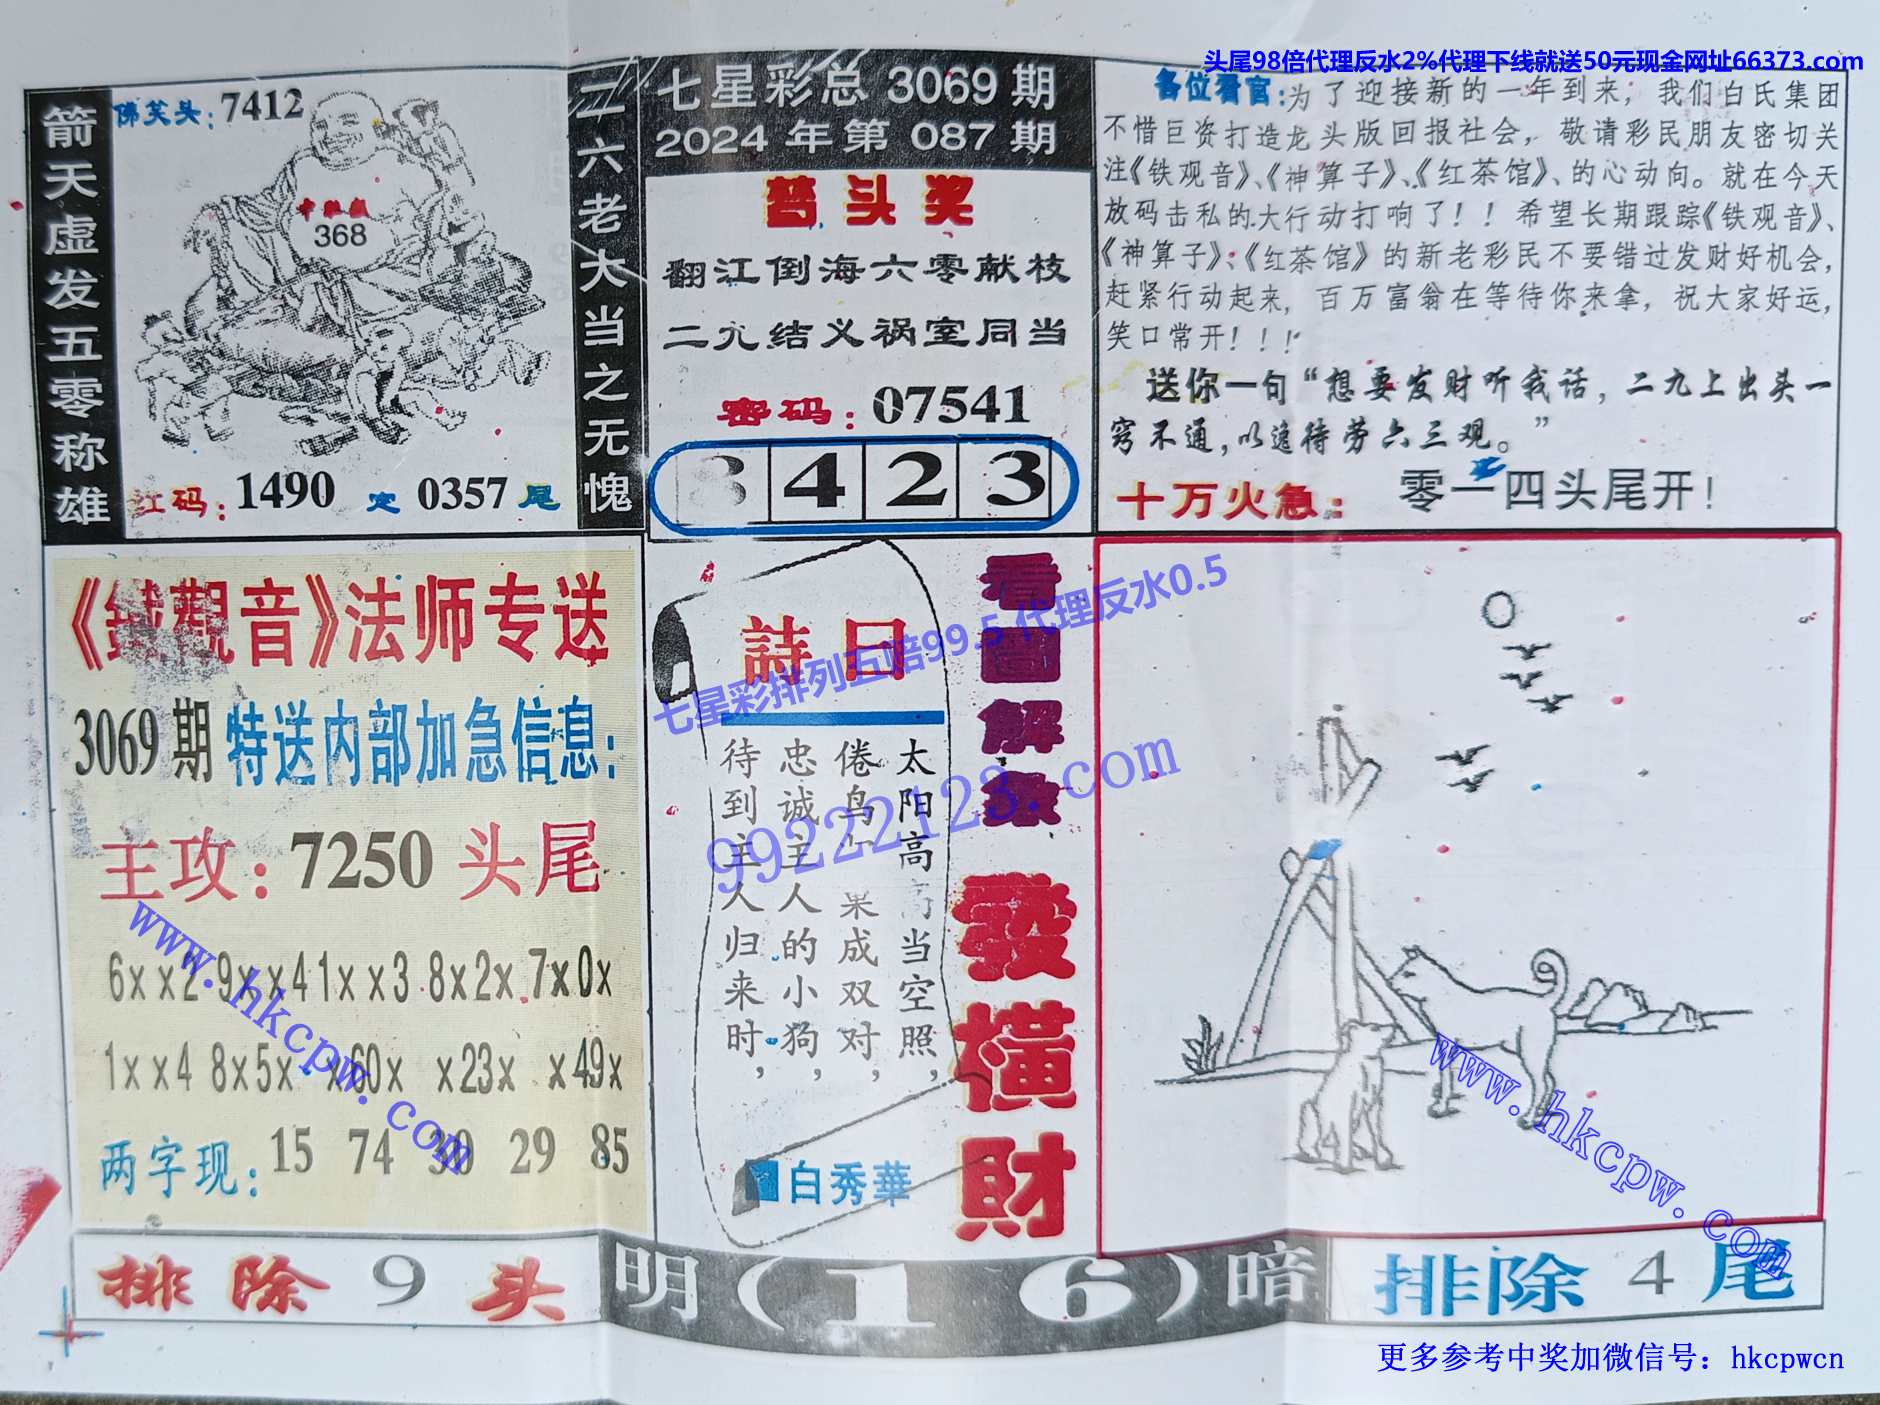 头尾98倍代理反水2%代理下线就送50元现金网址66373.com
箭天虚发五零称雄
佛笑头:7412
368
红码:1490 定 0357 尾
二六老大当之无愧
七星彩总 3069 期
2024 年第 087 期
头奖
翻江倒海六零献枝
二九结义祸室同当
密码:07541
3423
各位看官:为了迎接新的一年到来,我们白氏集团
不惜巨资打造龙头版回报社会,敬请彩民朋友密切关
注《铁观音》、《神算子》、《红茶馆》、的心动向。就在今天
放码击私的大行动打响了!!希望长期跟踪《铁观音》、
《神算子》;《红茶馆》的新老彩民不要错过发财好机会,
赶紧行动起来,百万富翁在等待你来拿,祝大家好运,
笑口常开!!!
送你一句“想要发财听我话,二九上出头一
窍不通,以逸待劳六三观。”
十万火急: 零一四头尾开!
《鐵觀音》法师专送
3069期 特送内部加急信息:
主攻:7250 头尾
6xx2 9xx4 1xx3 8x2x 7x0x
1xx4 8x5x x60x x23x x49x
两字现: 15 74 30 29 85
詩曰
太阳高高当空照,
倦鸟 果成双对,
忠诚主人的小狗,
待到主人归来时,
白秀華
看图解象
發橫財
七星彩排列五赔99.5 代理反水0.5
99222123.com
www.hkcpw.com
www.hkcpw.com
排除 9 头
明(16)暗
排除 4 尾
更多参考中奖加微信号:hkcpwcn